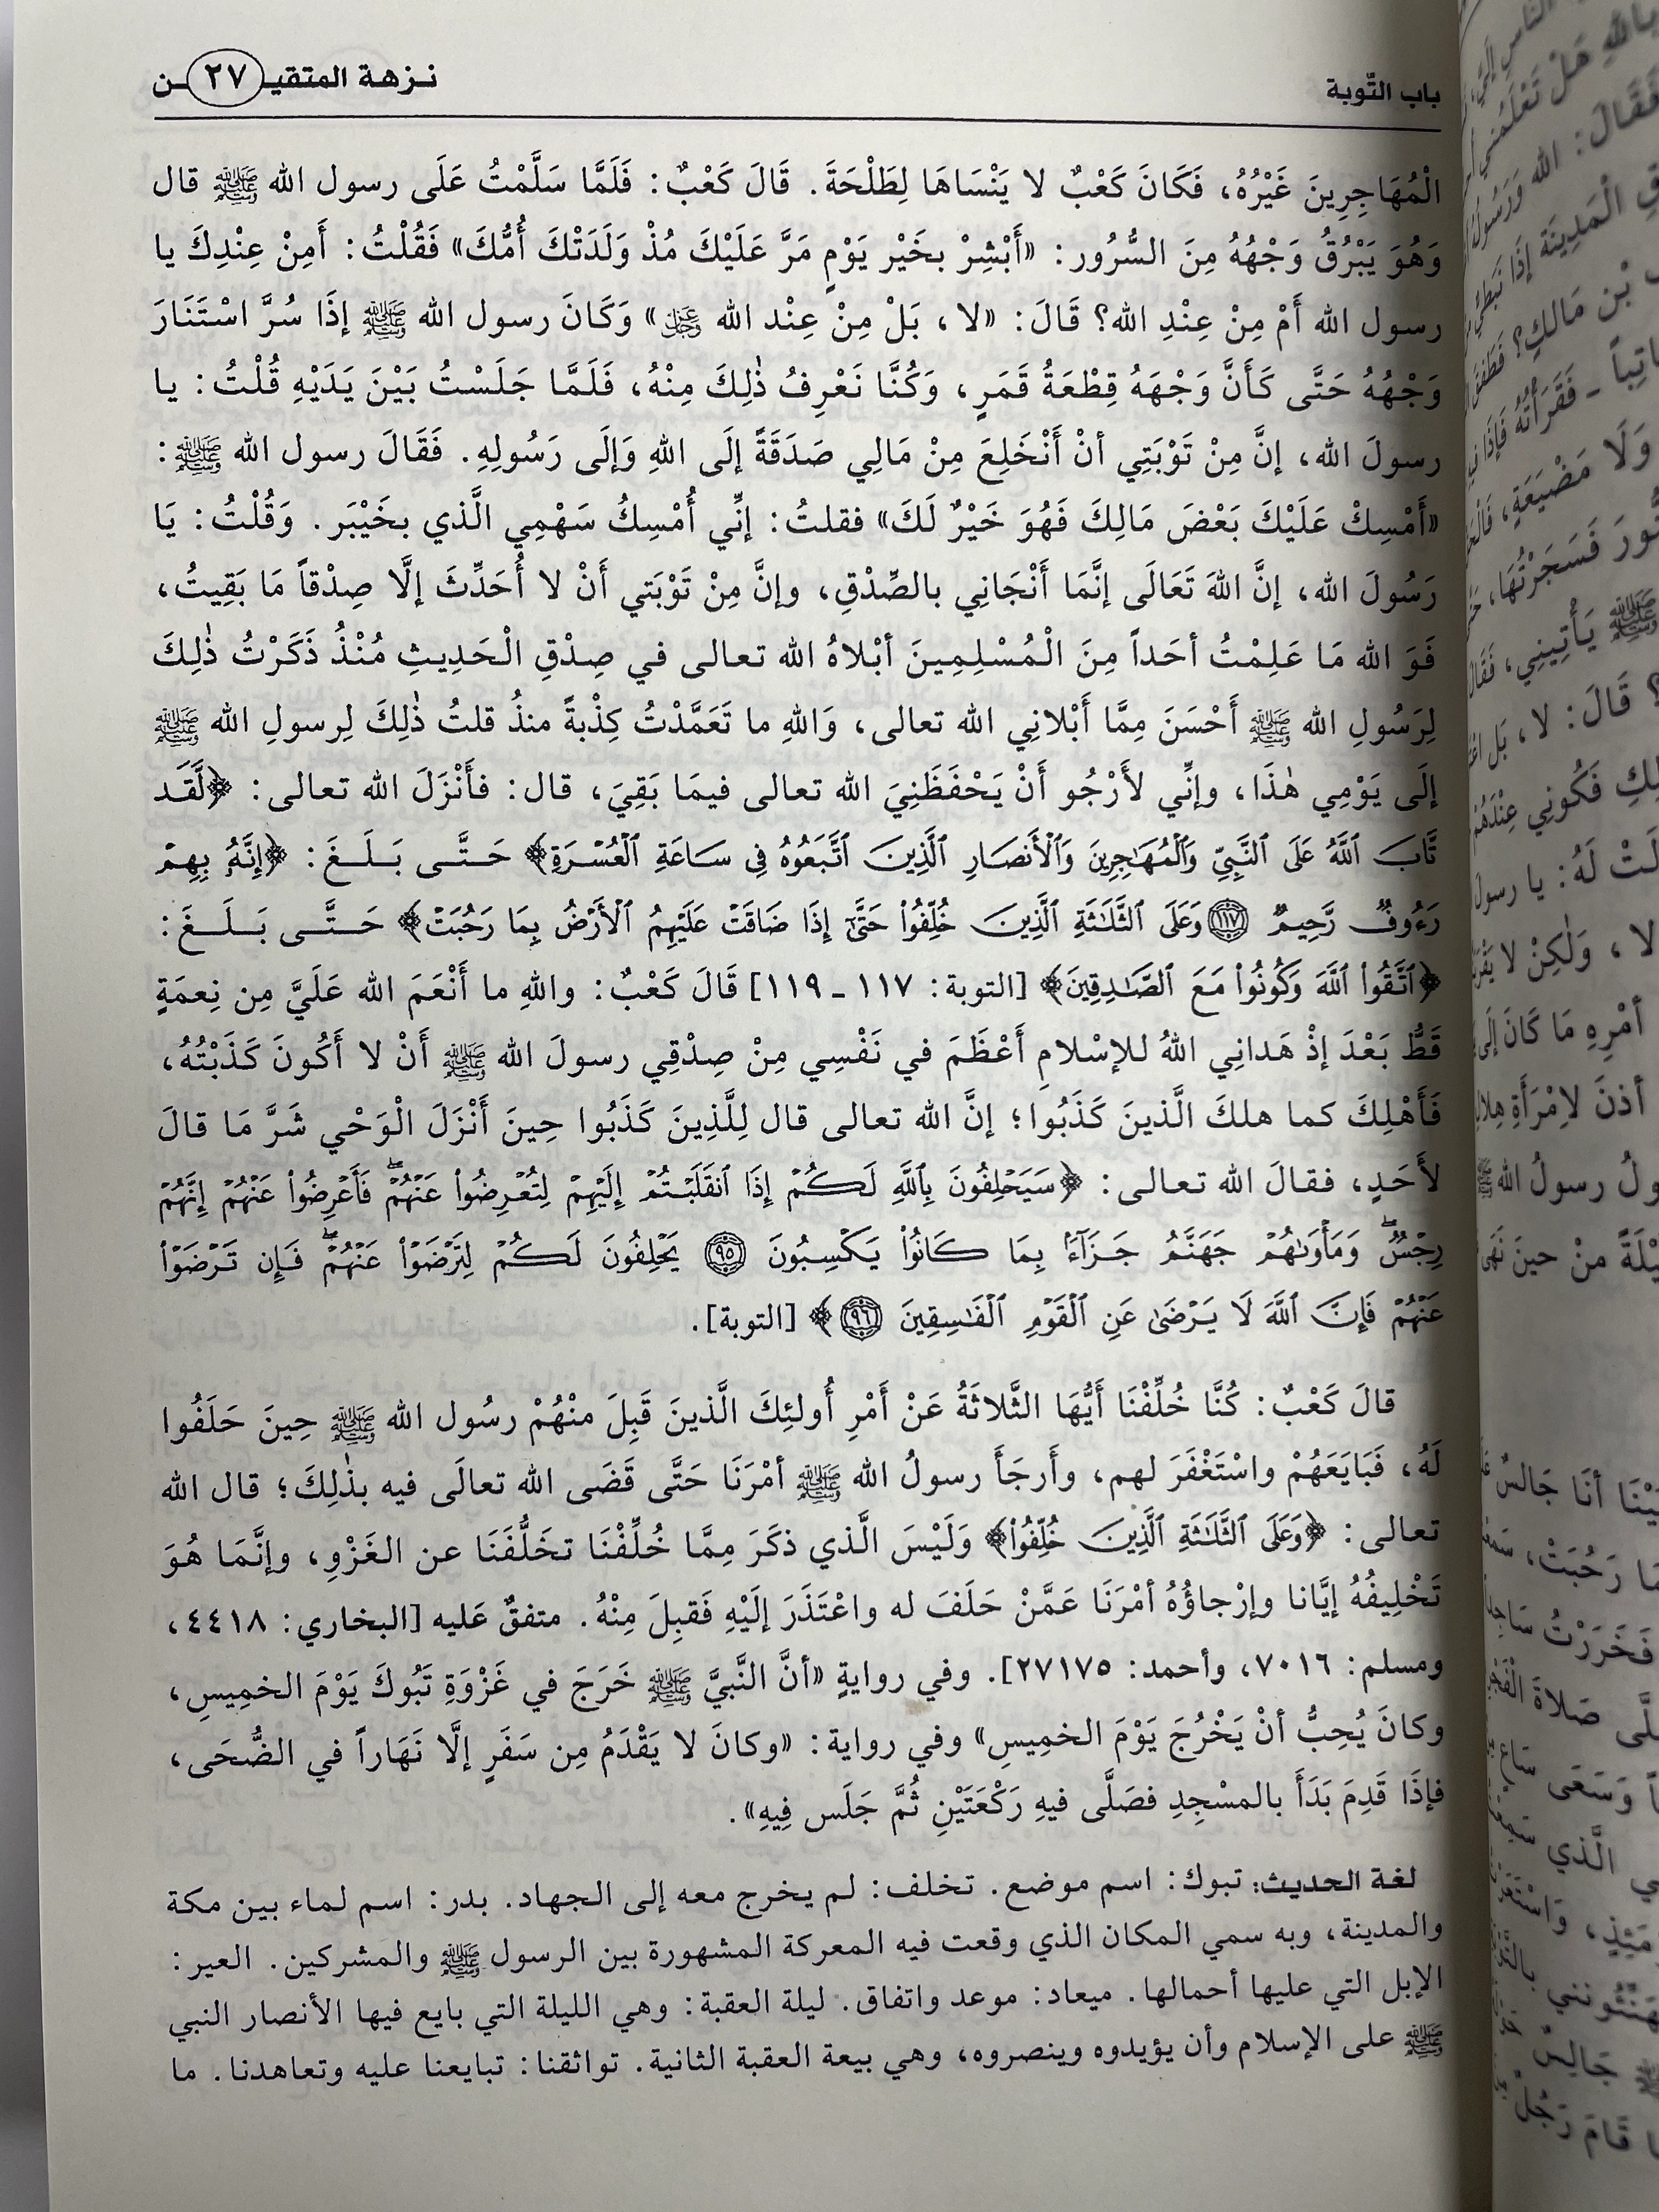 باب التّوبة
نـزهـة المتقيـ ٢٧ ـن
الْمُهَاجِرِينَ غَيْرُهُ، فَكَانَ كَعْبٌ لا يَنْسَاهَا لِطَلْحَةَ. قَالَ كَعْبٌ: فَلَمَّا سَلَّمْتُ عَلَى رسول الله ﷺ قال
وَهُوَ يَبْرُقُ وَجْهُهُ مِنَ السُّرُور: «أَبْشِرْ بخَيْر يَوْمٍ مَرَّ عَلَيْكَ مُذْ وَلَدَتْكَ أُمُّكَ» فَقُلْتُ: أَمِنْ عِنْدِكَ يا
رسول الله أَمْ مِنْ عِنْدِ الله؟ قَالَ: «لا، بَلْ مِنْ عِنْد الله ﷿» وَكَانَ رسول الله ﷺ إذَا سُرَّ اسْتَنَارَ
وَجْهُهُ حَتَّى كَأَنَّ وَجْهَهُ قِطْعَةُ قَمَرٍ، وَكُنَّا نَعْرِفُ ذٰلِكَ مِنْهُ، فَلَمَّا جَلَسْتُ بَيْنَ يَدَيْهِ قُلْتُ: يا
رسولَ الله، إنَّ مِنْ تَوْبَتِي أنْ أَنْخَلِعَ مِنْ مَالِي صَدَقَةً إلَى اللهِ وَإلَى رَسُولِهِ. فَقَالَ رسول الله ﷺ:
«أَمْسِكْ عَلَيْكَ بَعْضَ مَالِكَ فَهُوَ خَيْرٌ لَكَ» فقلتُ: إنِّي أُمْسِكُ سَهْمِي الَّذي بخَيْبَر. وَقُلْتُ: يَا
رَسُولَ الله، إنَّ اللهَ تَعَالَى إنَّمَا أَنْجَانِي بالصِّدْقِ، وإنَّ مِنْ تَوْبَتي أَنْ لا أُحَدِّثَ إلَّا صِدْقاً مَا بَقِيتُ،
فَوَ الله مَا عَلِمْتُ أحَداً مِنَ الْمُسْلِمِينَ أبْلاهُ الله تعالى في صِدْقِ الْحَدِيثِ مُنْذُ ذَكَرْتُ ذٰلِكَ
لِرَسُولِ الله ﷺ أَحْسَنَ مِمَّا أَبْلانِي الله تعالى، وَاللهِ ما تَعَمَّدْتُ كِذْبةً منذُ قلتُ ذٰلِكَ لِرسولِ الله ﷺ
إلَى يَوْمِي هٰذَا، وإنِّي لأَرْجُو أَنْ يَحْفَظَنِيَ الله تعالى فيمَا بَقِيَ، قال: فأَنْزَلَ الله تعالى: ﴿لَّقَد
تَّابَ ٱللَّهُ عَلَى ٱلنَّبِيِّ وَٱلْمُهَٰجِرِينَ وَٱلْأَنصَارِ ٱلَّذِينَ ٱتَّبَعُوهُ فِى سَاعَةِ ٱلْعُسْرَةِ﴾ حَـتَّـى بَـلَـغَ: ﴿إِنَّهُۥ بِهِمْ
رَءُوفٌ رَّحِيمٌ ١١٧ وَعَلَى ٱلثَّلَٰثَةِ ٱلَّذِينَ خُلِّفُوا۟ حَتَّىٰٓ إِذَا ضَاقَتْ عَلَيْهِمُ ٱلْأَرْضُ بِمَا رَحُبَتْ﴾ حَـتَّـى بَـلَـغَ:
﴿ٱتَّقُوا۟ ٱللَّهَ وَكُونُوا۟ مَعَ ٱلصَّٰدِقِينَ﴾ [التوبة: ١١٧ ـ ١١٩] قَالَ كَعْبٌ: واللهِ ما أَنْعَمَ الله عَلَيَّ مِن نِعمَةٍ
قَطُّ بَعْدَ إذْ هَدانِي اللهُ للإسْلامِ أَعْظَمَ في نَفْسِي مِنْ صِدْقِي رسولَ الله ﷺ أَنْ لا أَكُونَ كَذَبْتُهُ،
فَأَهْلِكَ كما هلكَ الَّذينَ كَذَبُوا؛ إنَّ الله تعالى قال لِلَّذِينَ كَذَبُوا حِينَ أَنْزَلَ الْوَحْي شَرَّ مَا قالَ
لأَحَدٍ، فقالَ الله تعالى: ﴿سَيَحْلِفُونَ بِٱللَّهِ لَكُمْ إِذَا ٱنقَلَبْتُمْ إِلَيْهِمْ لِتُعْرِضُوا۟ عَنْهُمْ ۖ فَأَعْرِضُوا۟ عَنْهُمْ إِنَّهُمْ
رِجْسٌ ۖ وَمَأْوَىٰهُمْ جَهَنَّمُ جَزَآءًۢ بِمَا كَانُوا۟ يَكْسِبُونَ ٩٥ يَحْلِفُونَ لَكُمْ لِتَرْضَوْا۟ عَنْهُمْ ۖ فَإِن تَرْضَوْا۟
عَنْهُمْ فَإِنَّ ٱللَّهَ لَا يَرْضَىٰ عَنِ ٱلْقَوْمِ ٱلْفَٰسِقِينَ ٩٦﴾ [التوبة].
قالَ كَعْبٌ: كُنَّا خُلِّفْنَا أَيُّهَا الثَّلاثَةُ عَنْ أَمْرِ أُولئِكَ الَّذينَ قَبِلَ منْهُمْ رسُول الله ﷺ حِينَ حَلَفُوا
لَهُ، فَبَايَعَهُمْ واسْتَغْفَرَ لهم، وأَرجَأَ رسولُ الله ﷺ أمْرَنَا حَتَّى قَضَى الله تعالَى فيه بذٰلِكَ؛ قال الله
تعالى: ﴿وَعَلَى ٱلثَّلَٰثَةِ ٱلَّذِينَ خُلِّفُوا۟﴾ وَلَيْسَ الَّذي ذكَرَ مِمَّا خُلِّفْنَا تخَلُّفَنَا عن الغَزْوِ، وإنَّمَا هُوَ
تَخْلِيفُهُ إيَّانا وإرْجاؤُهُ أمْرَنَا عَمَّنْ حَلَفَ له واعْتَذَرَ إلَيْهِ فَقبِلَ مِنْهُ. متفقٌ عَليه [البخاري: ٤٤١٨،
ومسلم: ٧٠١٦، وأحمد: ٢٧١٧٥]. وفي روايةٍ «أنَّ النَّبيَّ ﷺ خَرَجَ في غَزْوَةِ تَبُوكَ يَوْمَ الخمِيسِ،
وكانَ يُحِبُّ أنْ يَخْرُجَ يَوْمَ الخمِيسِ» وفي رواية: «وكانَ لا يَقْدَمُ مِن سَفَرٍ إلَّا نَهَاراً في الضُّحَى،
فإذَا قَدِمَ بَدَأَ بالمسْجِدِ فصَلَّى فيهِ رَكْعَتَيْنِ ثُمَّ جَلَس فِيهِ».
لغة الحديث: تبوك: اسم موضع. تخلف: لم يخرج معه إلى الجهاد. بدر: اسم لماء بين مكة
والمدينة، وبه سمي المكان الذي وقعت فيه المعركة المشهورة بين الرسول ﷺ والمشركين. العير:
الإبل التي عليها أحمالها. ميعاد: موعد واتفاق. ليلة العقبة: وهي الليلة التي بايع فيها الأنصار النبي
ﷺ على الإسلام وأن يؤيدوه وينصروه، وهي بيعة العقبة الثانية. تواثقنا: تبايعنا عليه وتعاهدنا. ما